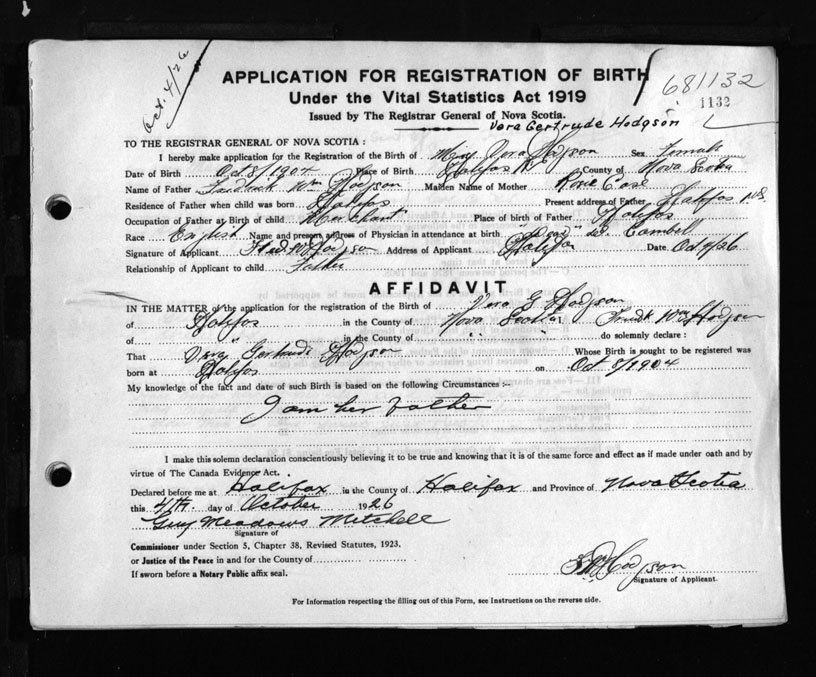 Oct. 4/26
APPLICATION FOR REGISTRATION OF BIRTH
681132
Under the Vital Statistics Act 1919
1132
Issued by The Registrar General of Nova Scotia.
Vera Gertrude Hodgson
TO THE REGISTRAR GENERAL OF NOVA SCOTIA :
I hereby make application for the Registration of the Birth of Miss Vera Hodgson Sex Female
Date of Birth Oct 8/1904 Place of Birth Halifax County of Nova Scotia
Name of Father Fredrick Wm Hodgson Maiden Name of Mother Rosie Case
Residence of Father when child was born Halifax Present address of Father Halifax N.S.
Occupation of Father at Birth of child Merchant Place of birth of Father Halifax
Race English Name and present address of Physician in attendance at birth Cambell
Signature of Applicant Fred W Hodgson Address of Applicant Halifax Date Oct 4/26
Relationship of Applicant to child Father
AFFIDAVIT
IN THE MATTER of the application for the registration of the Birth of Vera G Hodgson
of Halifax in the County of Nova Scotia I Wm Hodgson
of in the County of " " do solemnly declare :
That Vera Gertrude Hodgson Whose Birth is sought to be registered was
born at Halifax on Oct 8/1904
My knowledge of the fact and date of such Birth is based on the following Circumstances :-
I am her Father
I make this solemn declaration conscientiously believing it to be true and knowing that it is of the same force and effect as if made under oath and by
virtue of The Canada Evidence Act.
Declared before me at Halifax in the County of Halifax and Province of Nova Scotia
this 4th. day of October 1926
Guy Meadows Mitchell
Signature of
Commissioner under Section 5, Chapter 38, Revised Statutes, 1923.
or Justice of the Peace in and for the County of
If sworn before a Notary Public affix seal.
F W Hodgson
Signature of Applicant.
For Information respecting the filling out of this Form, see Instructions on the reverse side.